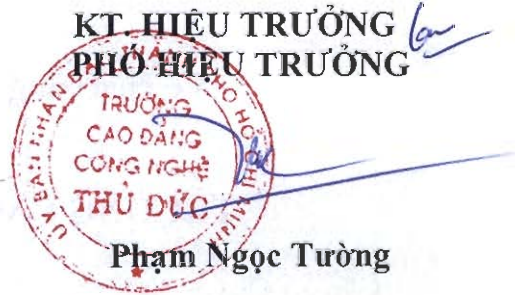 KT. HIỆU TRƯỞNG
PHÓ HIỆU TRƯỞNG
ỦY BAN NHÂN DÂN THÀNH PHỐ HỒ CHÍ MINH
TRƯỜNG
CAO ĐẲNG
CÔNG NGHỆ
THỦ ĐỨC
Phạm Ngọc Tường